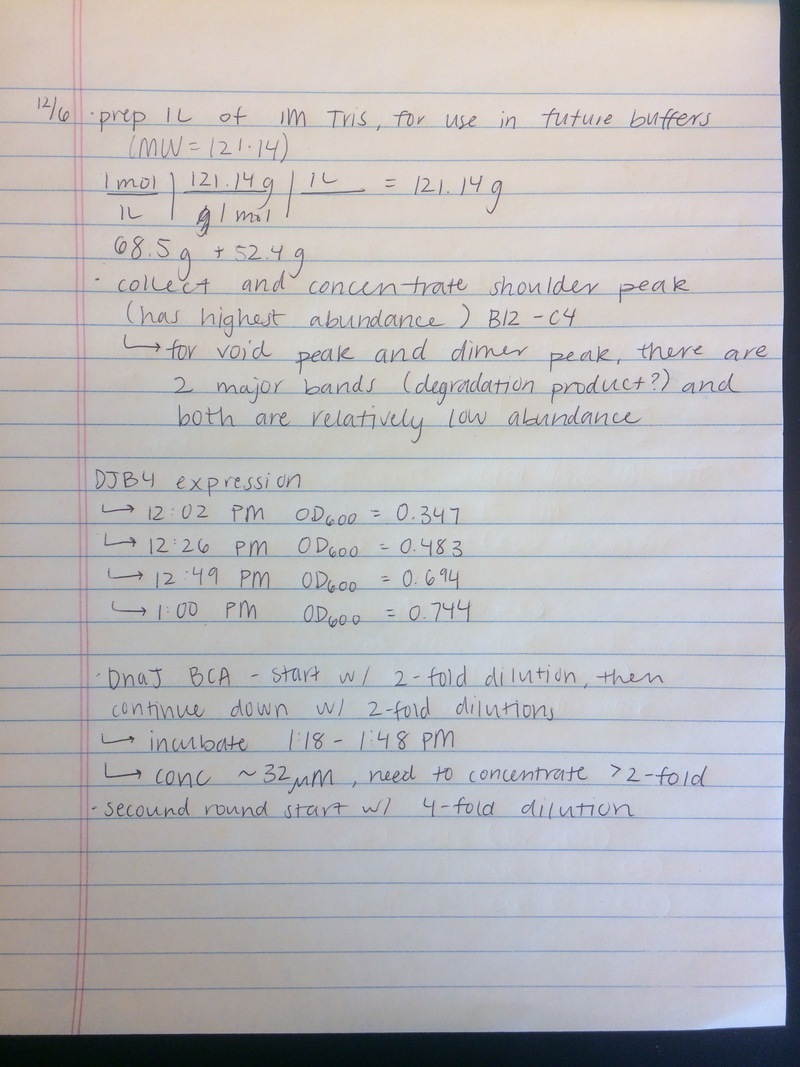 12/6 · prep 1L of 1M Tris, for use in future buffers
(MW = 121.14)
1 mol | 121.14 g | 1L = 121.14 g
1L | 1 mol |
68.5 g + 52.4 g
· collect and concentrate shoulder peak
(has highest abundance) B12 - C4
↳ for void peak and dimer peak, there are
2 major bands (degradation product?) and
both are relatively low abundance
DJB4 expression
↳ 12:02 PM OD600 = 0.347
↳ 12:26 PM OD600 = 0.483
↳ 12:49 PM OD600 = 0.694
↳ 1:00 PM OD600 = 0.744
· DnaJ BCA - start w/ 2-fold dilution, then
continue down w/ 2-fold dilutions
↳ incubate 1:18 - 1:48 PM
↳ conc ~32µM, need to concentrate >2-fold
· secound round start w/ 4-fold dilution